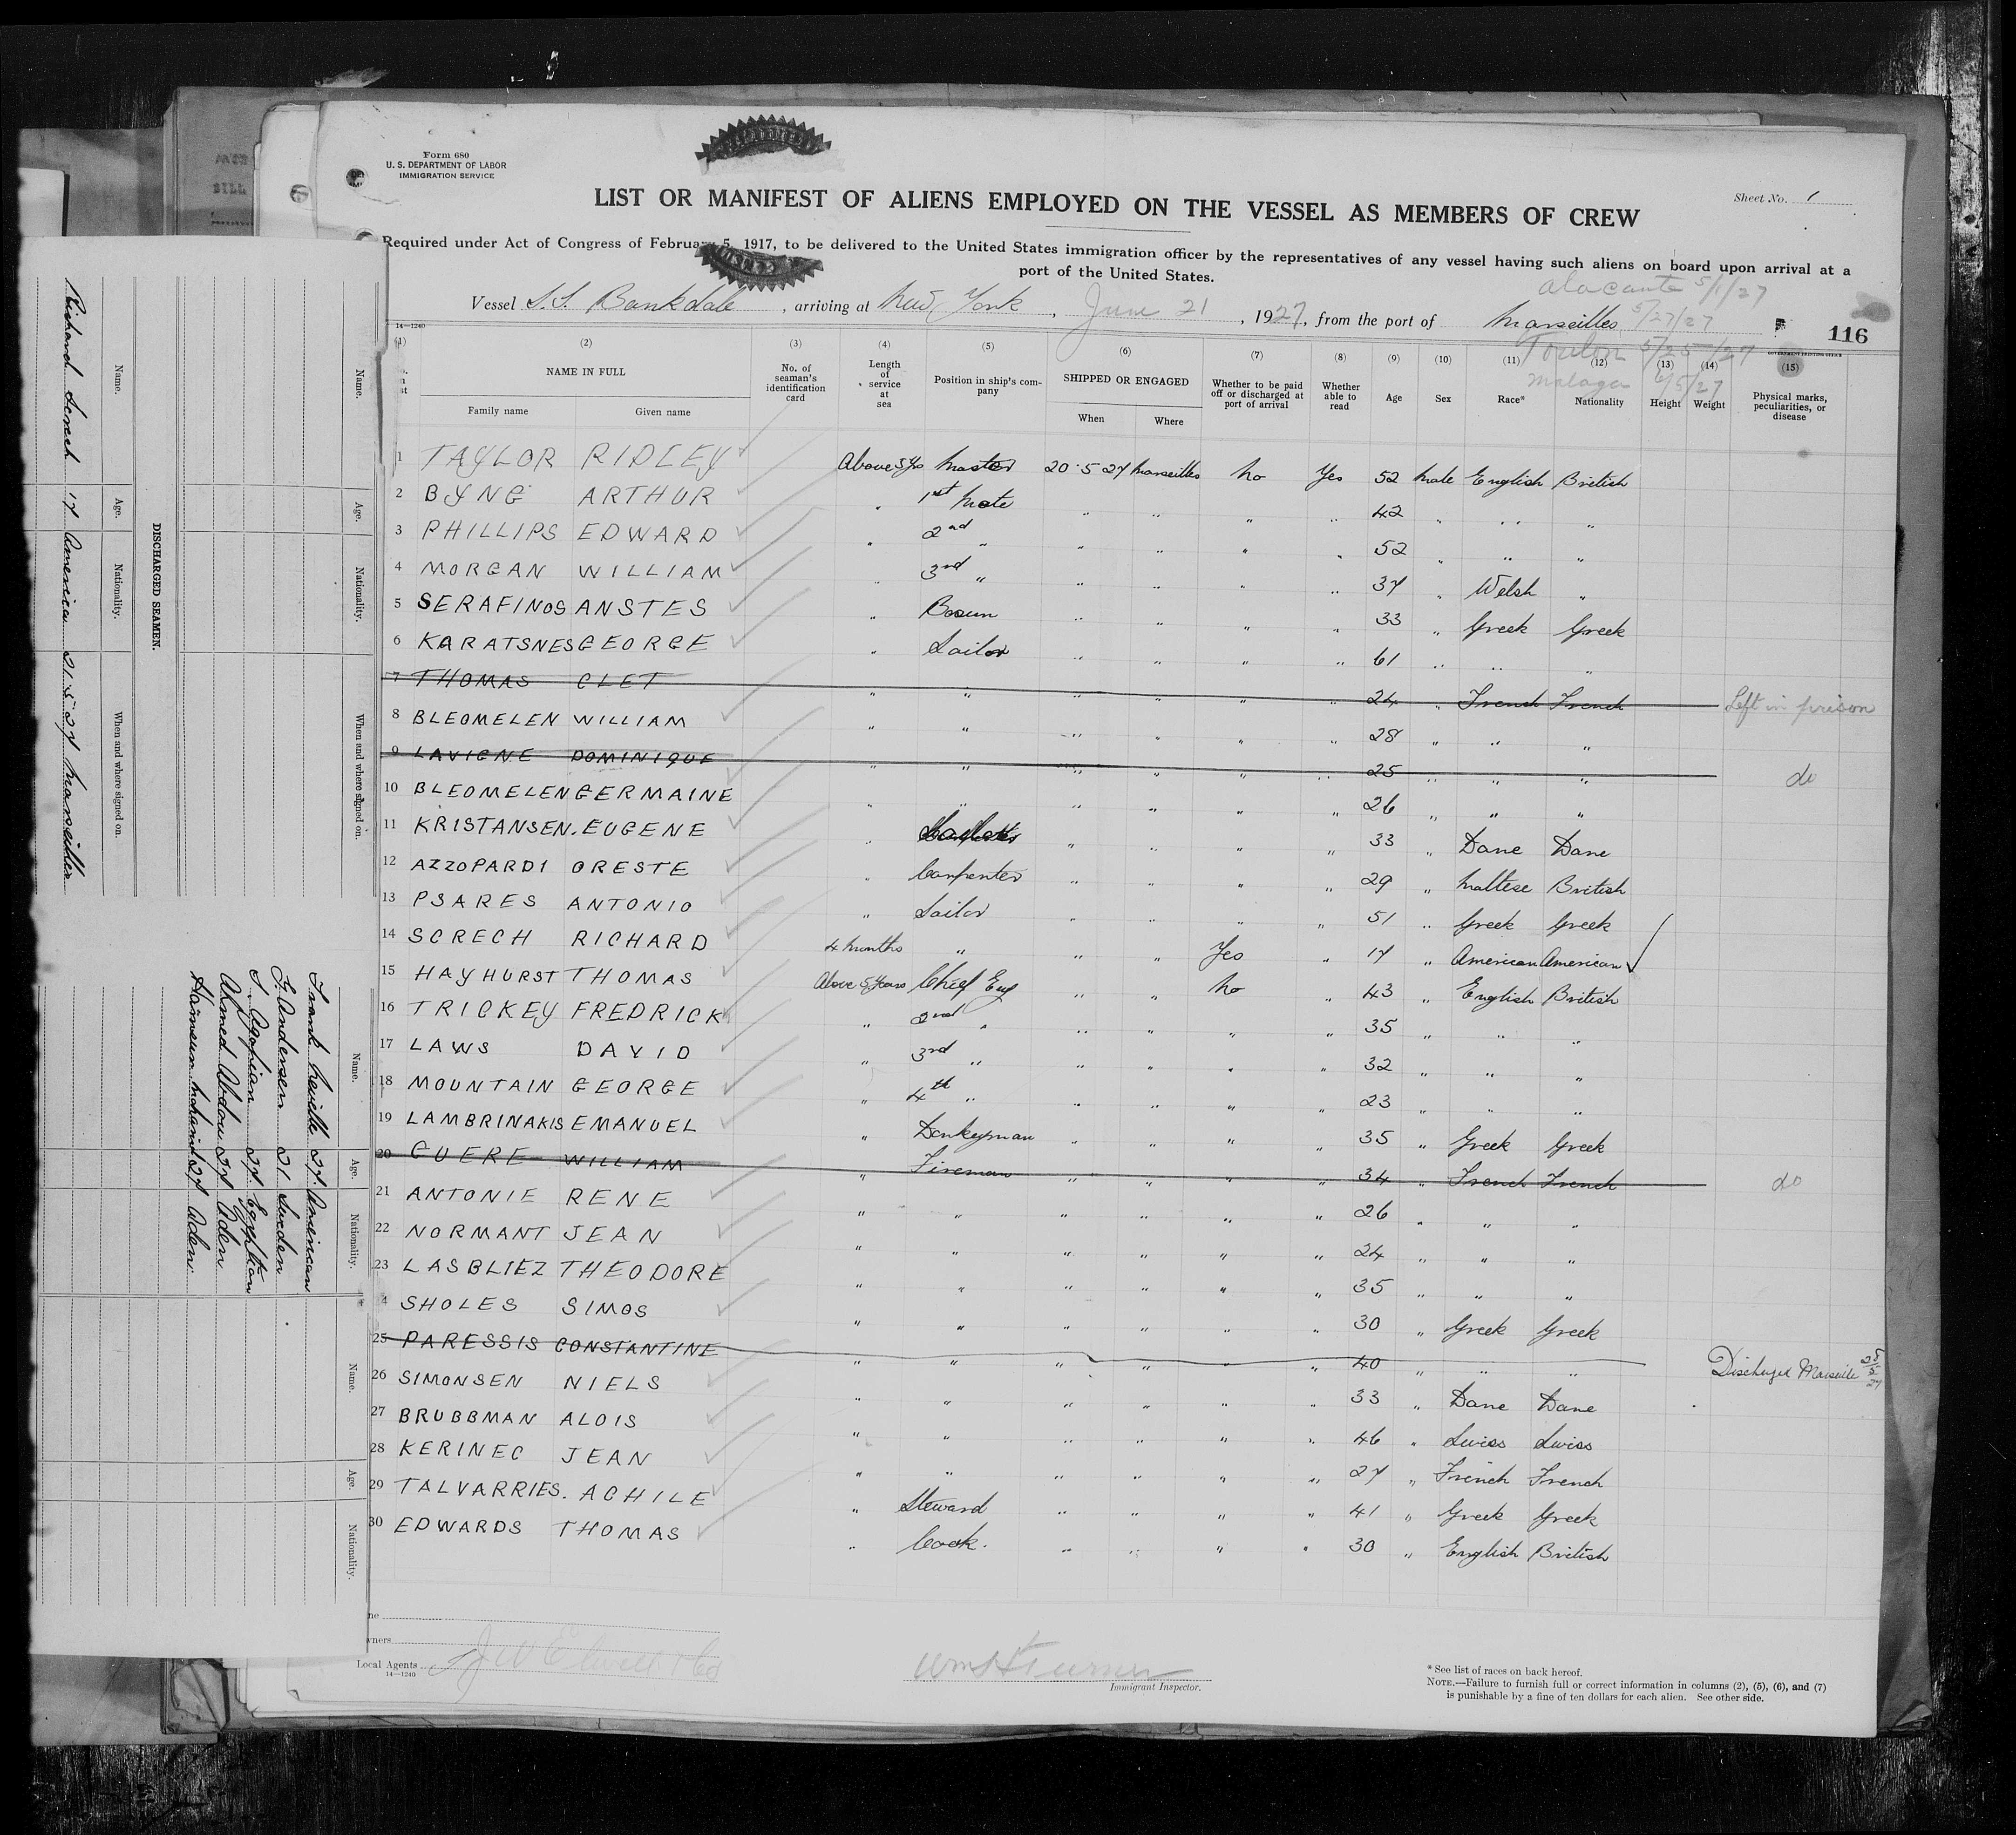 Form 680
U. S. DEPARTMENT OF LABOR
IMMIGRATION SERVICE
Sheet No. 1
LIST OR MANIFEST OF ALIENS EMPLOYED ON THE VESSEL AS MEMBERS OF CREW
Required under Act of Congress of February 5, 1917, to be delivered to the United States immigration officer by the representatives of any vessel having such aliens on board upon arrival at a
port of the United States.
Alacante 5/1/27
Vessel S.S. Bankdale, arriving at New York, June 21, 1927, from the port of Marseilles 5/27/27
Toulon 5/25/27
Malaga 6/5/27
116
14—1240
(1) (2) (3) (4) (5) (6) (7) (8) (9) (10) (11) (12) (13) (14) (15)
NAME IN FULL
Family name Given name
No. of seaman's identification card
Length of service at sea
Position in ship's company
SHIPPED OR ENGAGED
When Where
Whether to be paid off or discharged at port of arrival
Whether able to read
Age
Sex
Race*
Nationality
Height
Weight
Physical marks, peculiarities, or disease
1 TAYLOR RIDLEY Above 5 Yrs Master 20·5 27 Marseilles No Yes 52 Male English British
2 BYNG ARTHUR " 1st Mate " " " " 42 " " "
3 PHILLIPS EDWARD " 2nd " " " " " 52 " " "
4 MORGAN WILLIAM " 3rd " " " " " 37 " Welsh "
5 SERAFINOS ANSTES " Bosun " " " " 33 " Greek Greek
6 KARATSNES GEORGE " Sailor " " " " 61 " " "
7 THOMAS CLET " " " " " " 24 " French French Left in prison
8 BLEOMELEN WILLIAM " " " " " " 28 " " "
9 LAVIGNE DOMINIQUE " " " " " " 25 " " " do
10 BLEOMELEN GERMAINE " " " " " " 26 " " "
11 KRISTANSEN. EUGENE " " " " " 33 " Dane Dane
12 AZZOPARDI ORESTE " Carpenter " " " " 29 " Maltese British
13 PSARES ANTONIO " Sailor " " " " 51 " Greek Greek
14 SCRECH RICHARD 4 months " " " Yes " 17 " American American
15 HAYHURST THOMAS Above 5 Years Chief Eng " " No " 43 " English British
16 TRICKEY FREDRICK " 2nd " " " " " 35 " " "
17 LAWS DAVID " 3rd " " " " " 32 " " "
18 MOUNTAIN GEORGE " 4th " " " " " 23 " " "
19 LAMBRINAKIS EMANUEL " Donkeyman " " " " 35 " Greek Greek
20 GUERE WILLIAM " Fireman " " " " 34 " French French do
21 ANTONIE RENE " " " " " " 26 " " "
22 NORMANT JEAN " " " " " " 24 " " "
23 LASBLIEZ THEODORE " " " " " " 35 " " "
4 SHOLES SIMOS " " " " " " 30 " Greek Greek
25 PARESSIS CONSTANTINE " " " " " " 40 " " " Discharged Marseille 25/5/27
26 SIMONSEN NIELS " " " " " " 33 " Dane Dane
27 BRUBBMAN ALOIS " " " " " " 46 " Swiss Swiss
28 KERINEC JEAN " " " " " " 27 " French French
29 TALVARRIES. ACHILE " Steward " " " " 41 " Greek Greek
30 EDWARDS THOMAS " Cook. " " " " 30 " English British
Local Agents J W Elwell & Co
14—1240
Wm H Turner
Immigrant Inspector.
* See list of races on back hereof.
NOTE.—Failure to furnish full or correct information in columns (2), (5), (6), and (7)
is punishable by a fine of ten dollars for each alien. See other side.
Name. Age. Nationality. When and where signed on.
DISCHARGED SEAMEN.
Name. Age. Nationality. When and where signed on.
Richard Screch 17 America 21·5·27 Marseilles
Name. Age. Nationality. Name. Age. Nationality.
Frank Neville 27 American
G. Andersen 21 Sweden
J. Agopian 27 Egyptian
Ahmed Abdou 27 Aden
27 Aden